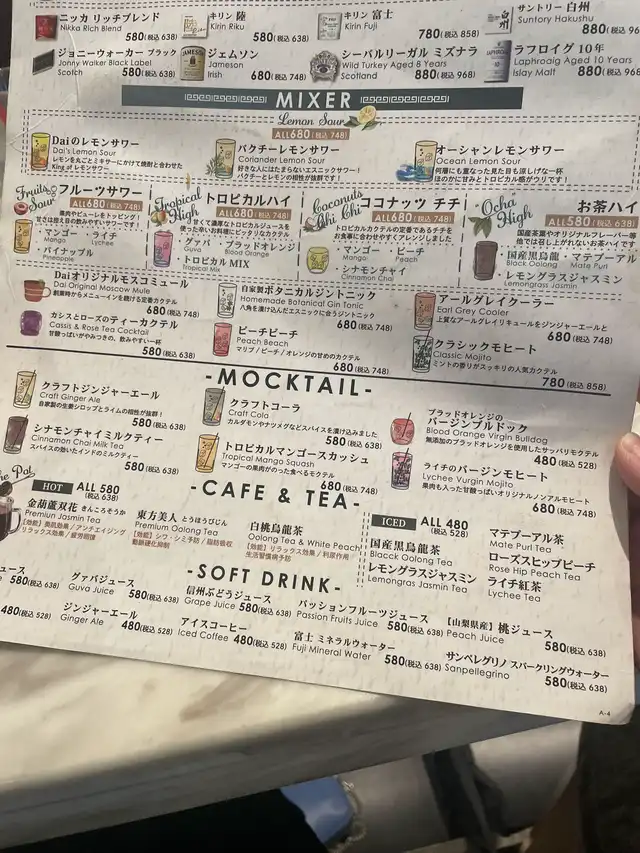 ニッカ リッチブレンド
Nikka Rich Blend
580(税込 638)
キリン 陸
Kirin Riku
580(税込 638)
キリン 富士
Kirin Fuji
780(税込 858)
サントリー 白州
Suntory Hakushu
880(税込 96
ジョニーウォーカー ブラック
Jonny Walker Black Label
Scotch
580(税込 638)
ジェムソン
Jameson
Irish
680(税込 748)
シーバルリーガル ミズナラ
Wild Turkey Aged 8 Years
Scotland
880(税込 968)
ラフロイグ 10年
Laphroaig Aged 10 Years
Islay Malt
880(税込 96
MIXER
Lemon Sour
ALL680(税込 748)
Daiのレモンサワー
Dai's Lemon Sour
レモンを丸ごとミキサーにかけて焼酎と合わせた
King of レモンサワー
パクチーレモンサワー
Coriander Lemon Sour
好きな人にはたまらないエスニックサワー!
パクチーとレモンの相性が抜群です!
オーシャンレモンサワー
Ocean Lemon Sour
何層にも重なった見た目も涼しげな一杯
ほのかに甘みとトロピカル感がウリです!
Fruits Sour
フルーツサワー
ALL680(税込 748)
果肉やピューレをトッピング!
甘さは控え目の飲みやすいサワーです!
マンゴー
Mango
・ライチ
Lychee
パイナップル
Pineapple
Tropical High
トロピカルハイ
ALL680(税込 748)
甘くて濃厚なトロピカルジュースを
使った辛いお料理にピッタリなカクテル
グァバ
Guava
・ブラッドオレンジ
Blood Orange
・トロピカルMIX
Tropical Mix
Coconuts Chi Chi
ココナッツ チチ
ALL680(税込 748)
トロピカルカクテルの定番であるチチを
お食事に合わせやすくアレンジしました
・マンゴー
Mango
・ピーチ
Peach
・シナモンチャイ
Cinnamon Chai
Ocha High
お茶ハイ
ALL580(税込 638)
国産茶葉やオリジナルフレーバー等
他では召し上がれないお茶ハイです
・国産黒烏龍
Black Oolong
・マテプーアル
Mate Purl
・レモングラスジャスミン
Lemongrass Jasmin
Daiオリジナルモスコミュール
Dai Original Moscow Mule
創業時からメニューインを続ける定番カクテル
680(税込 748)
自家製ボタニカルジントニック
Homemade Botanical Gin Tonic
八角を漬け込んだエスニックに合うジントニック
680(税込 748)
アールグレイクーラー
Earl Grey Cooler
上質なアールグレイリキュールをジンジャーエールと
680(税込 748)
カシスとローズのティーカクテル
Cassis & Rose Tea Cocktail
甘酸っぱいがやみつきの、飲みやすい一杯
580(税込 638)
ピーチピーチ
Peach Beach
マリブ/ピーチ/オレンジの甘めのカクテル
680(税込 748)
クラシックモヒート
Classic Mojito
ミントの香りがスッキリの人気カクテル
780(税込 858)
-MOCKTAIL-
クラフトジンジャーエール
Craft Ginger Ale
自家製の生姜シロップとライムの相性が抜群!
580(税込 638)
クラフトコーラ
Craft Cola
カルダモンやナツメグなどスパイスを漬け込みました
580(税込 638)
ブラッドオレンジの
バージンブルドック
Blood Orange Virgin Bulldog
無添加のブラッドオレンジを使用したサッパリモクテル
480(税込 528)
シナモンチャイミルクティー
Cinnamon Chai Milk Tea
スパイスの効いたインドのミルクティー
580(税込 638)
トロピカルマンゴースカッシュ
Tropical Mango Squash
マンゴーの果肉がのった食べるモクテル
680(税込 748)
ライチのバージンモヒート
Lychee Vurgin Mojito
果肉も入った甘酸っぱいオリジナルノンアルモヒート
680(税込 748)
-CAFE & TEA-
he Pot
HOT
ALL 580
(税込 638)
金葫蘆双花 きんころそうか
Premium Jasmin Tea
【効能】美肌効果/アンチエイジング
リラックス効果/疲労回復
東方美人 とうほうびじん
Premium Oolong Tea
【効能】シワ・シミ予防/脂肪吸収
動脈硬化抑制
白桃烏龍茶
Oolong Tea & White Peach
【効能】リラックス効果/利尿作用
生活習慣病予防
ICED
ALL 480
(税込 528)
国産黒烏龍茶
Blacck Oolong Tea
マテプーアル茶
Mate Purl Tea
レモングラスジャスミン
Lemongras Jasmin Tea
ローズヒップピーチ
Rose Hip Peach Tea
ライチ紅茶
Lychee Tea
-SOFT DRINK-
ュース
580(税込 638)
グァバジュース
Guva Juice
580(税込 638)
信州ぶどうジュース
Grape Juice
580(税込 638)
パッションフルーツジュース
Passion Fruits Juice
580(税込 638)
【山梨県産】桃ジュース
Peach Juice
580(税込 638)
480(税込 528)
ジンジャーエール
Ginger Ale
480(税込 528)
アイスコーヒー
Iced Coffee
480(税込 528)
富士 ミネラルウォーター
Fuji Mineral Water
580(税込 638)
サンペレグリノ スパークリングウォーター
Sanpellegrino
580(税込 638)
A-4